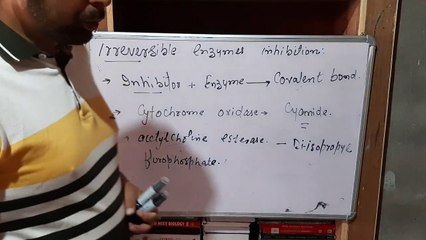 Irreversible Enzymes inhibition:
→ Inhibitor + Enzyme → Covalent bond.
→ Cytochrome oxidase - Cyanide.
acetylcholine esterase. - Diisopropyl
flurophosphate.
NEET BIOLOGY